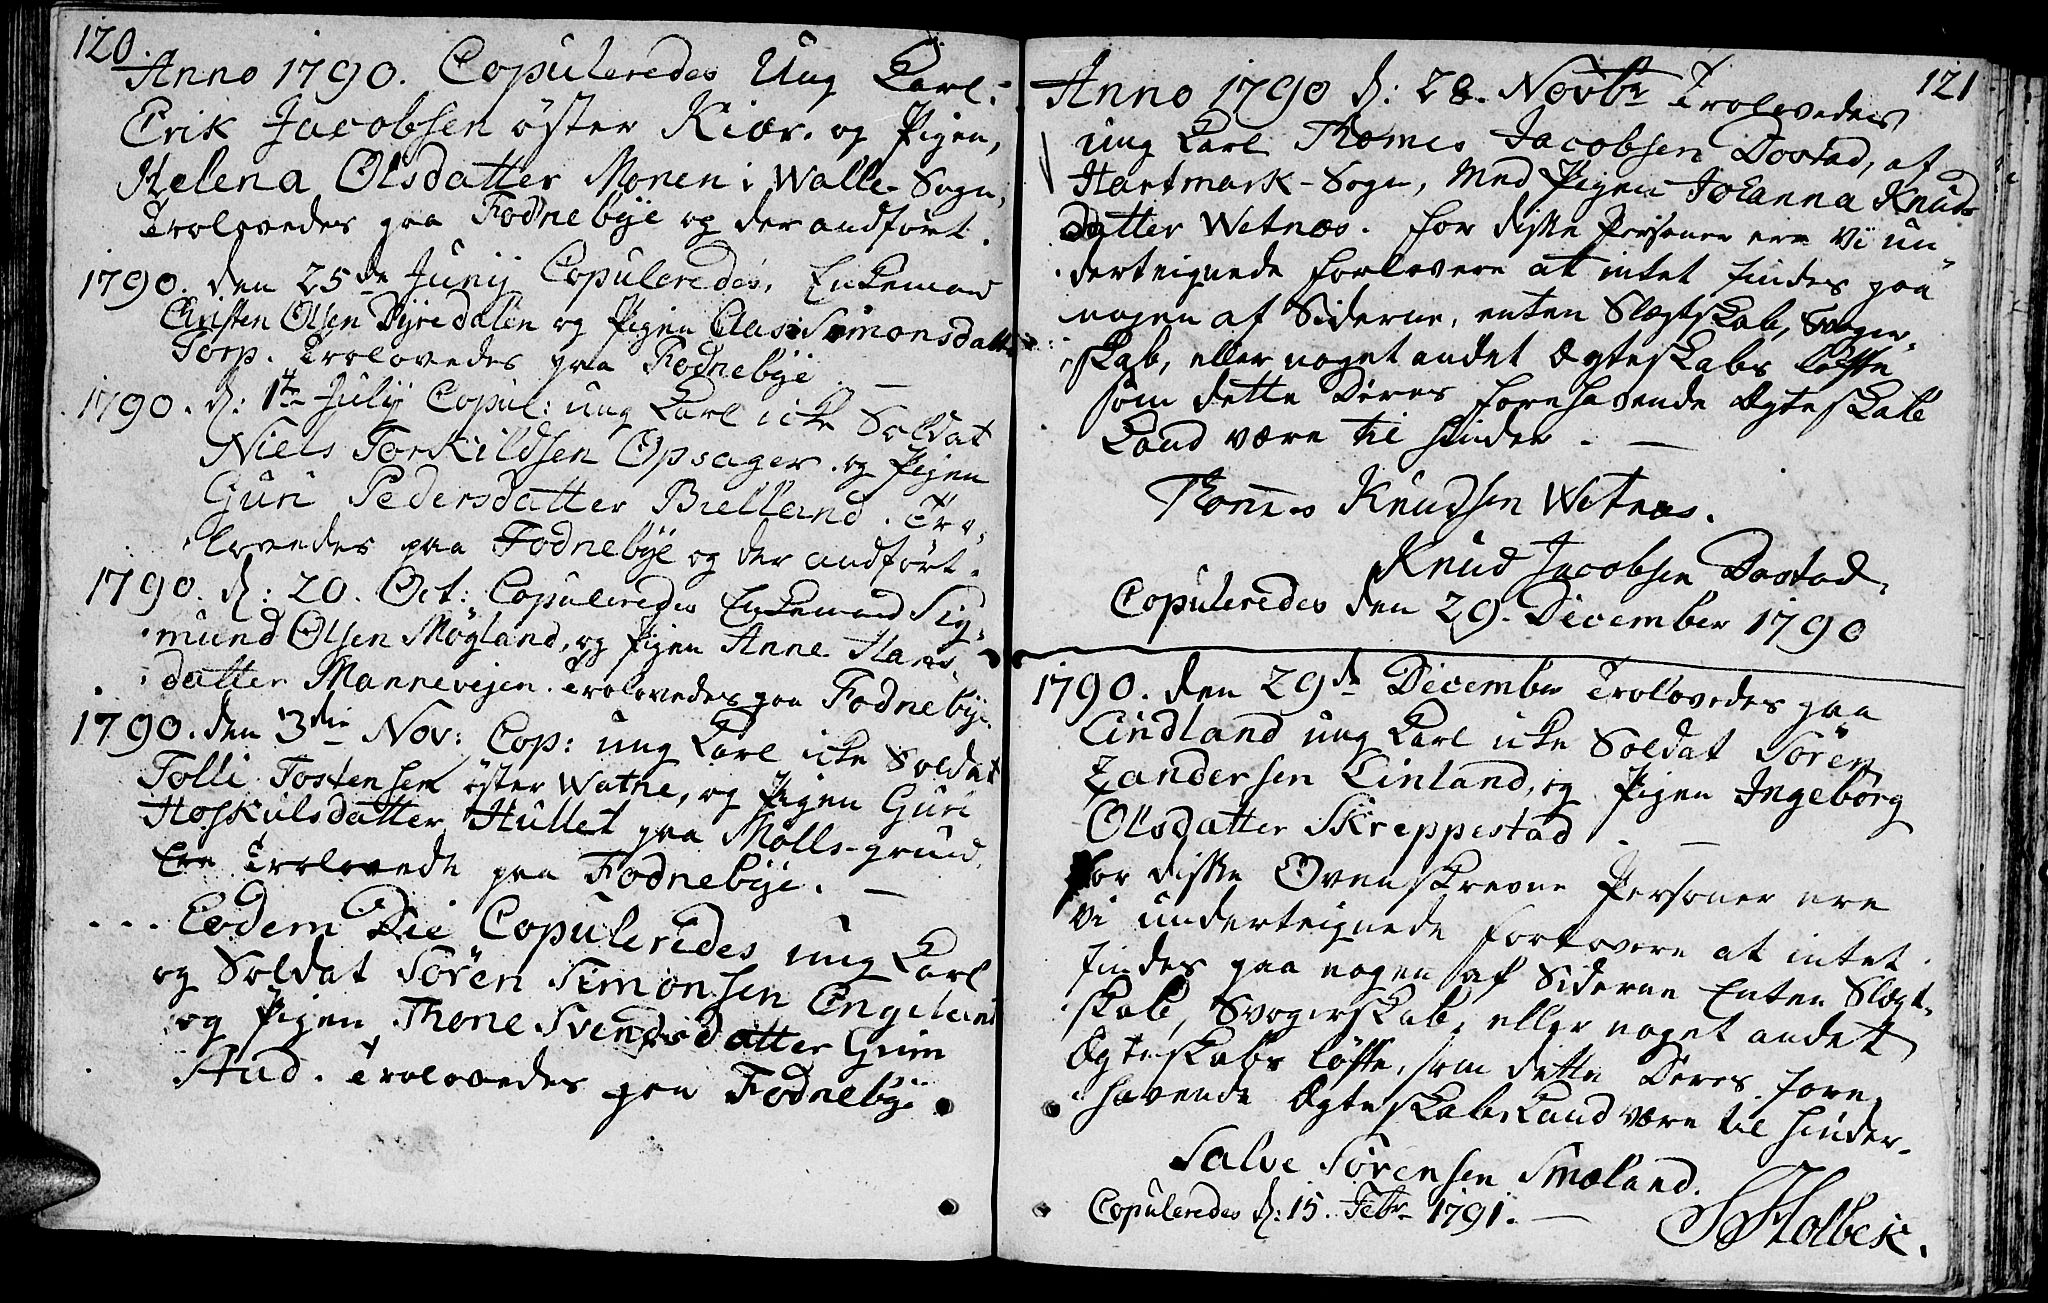 120.
Anno 1790. Copuleredes Ung Karl
Erik Jacobsen öster Kiær. og Pigen,
Helena Olsdatter Monen i Walle-Sogn,
Trolovedes paa Fodnebÿe og der andført.
1790. den 25de Junij Copuleredes, Enkemand
Christen Olsen Dÿredalen og Pigen Aase Simonsdatter
Torp. Trolovedes paa Fodnebÿe. —
1790. d: 1te Julij Copul: ung Karl icke Soldat
Niels Torkildsen Opsager. og Pigen
Guri Pedersdatter Bielland. Tro-
lovedes paa Fodnebÿe og der andført.
1790. d: 20. Oct: Copuleredes Enkemand Sig-
mund Olsen Mögland, og Pigen Anne Hans-
datter Mannevejen. Trolovedes paa Fodnebÿe.
1790. den 3die Nov: Cop: ung Karl icke Soldat
Tolli Tostensen öster Watne, og Pigen Guri
Hoskulsdatter Hullet paa Molls-grund,
Ere Trolovede paa Fodnebÿe. —
Eodem Die Copuleredes ung Karl
og Soldat Sören Simonsen Engeland
og Pigen Thone Svendsdatter Grim
Stad. Trolovedes paa Fodnebÿe.
121
Anno 1790 d: 28. Novbr Trolovedes
ung Karl Thomes Jacobsen Dostad, af
Hartmark-Sogn, med Pigen Johanna Knuds
datter Wetnæs. for disse Personer ere Vi un-
derteignede forlovere at intet findes paa
nogen af Siderne, enten Slægtskab, Svoger-
skab, eller noget andet Ægteskabs løfte
som dette Deres forehavende Ægteskab
Kand være til hinder. —
Thomes Knudsen Wetnæs.
Knud Jacobsen Dostad.
Copuleredes den 29. December 1790
1790. den 29de December Trolovedes paa
Lindland ung Karl icke Soldat Sören
Zandersen Linland, og Pigen Ingeborg
Olsdatter Skreppestad. —
for disse Ovenskrevne Personer ere
vi underteignede forlovere at intet
findes paa nogen af Siderne Enten Slægt-
skab, Svogerskab, eller noget andet
Ægteskabs løfte, som dette Deres fore-
havende Ægteskab Kand være til hinder.
Salve Sörensen Smæland.
Copuleredes d: 15. Febr 1791. —
Holbek.